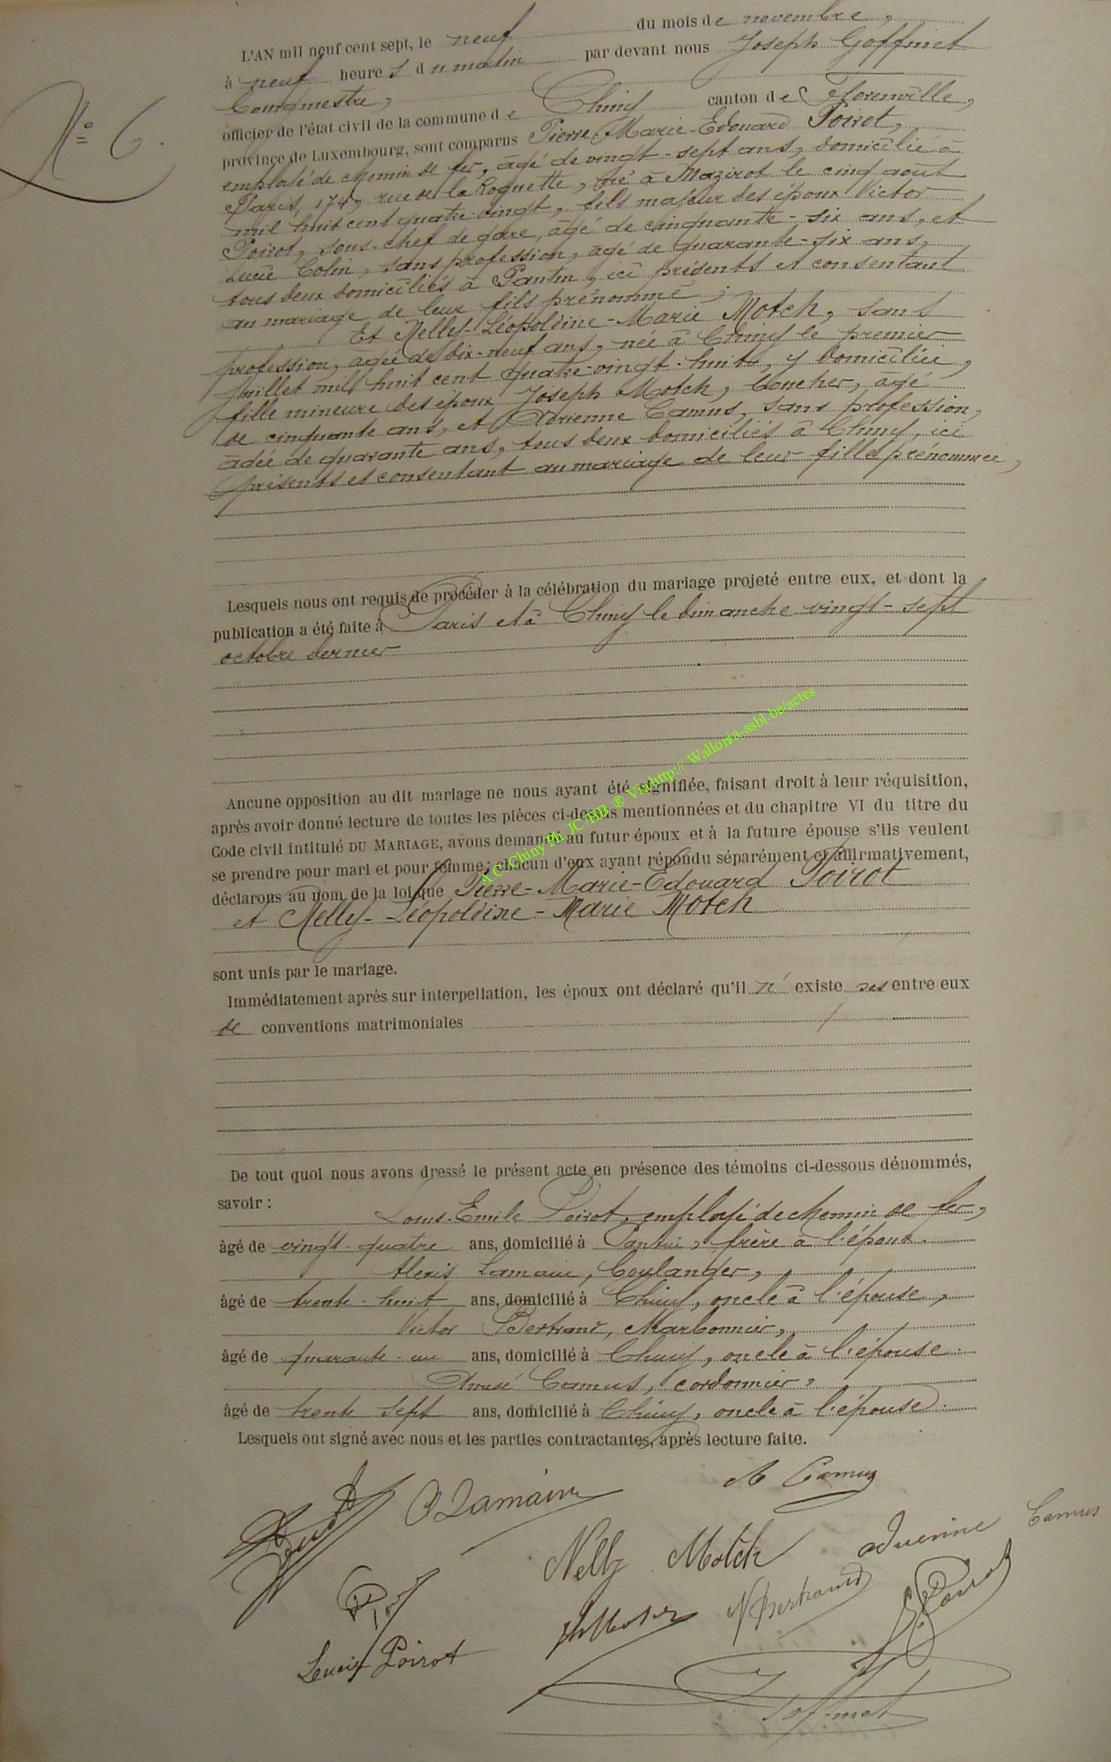 N° 6.
L'AN mil neuf cent sept, le neuf du mois de novembre,
à neuf heures du matin par devant nous Joseph Goffinet
Bourgmestre,
officier de l'état civil de la commune de Chiny canton de Florenville,
province de Luxembourg, sont comparus Pierre-Marie-Edouard Poirot,
employé de chemin de fer, âgé de vingt-sept ans, domicilié à
Paris, 174, rue de la Roquette, né à Mazirot le cinq août
mil huit cent quatre-vingt, fils majeur des époux Victor
Poirot, sous-chef de gare, âgé de cinquante-six ans, et
Lucie Colin, sans profession, âgé de quarante-six ans,
tous deux domiciliés à Pantin, ici présents et consentant
au mariage de leur fils prénommé ;
Et Nelly-Léopoldine-Marie Motch, sans
profession, âgée de dix-neuf ans, née à Chiny le premier
juillet mil huit cent quatre-vingt-huit, y domiciliée,
fille mineure des époux Joseph Motch, boucher, âgé
de cinquante ans, et Adrienne Camus, sans profession,
âgée de quarante ans, tous deux domiciliés à Chiny, ici
présents et consentant au mariage de leur fille prénommée,
Lesquels nous ont requis de procéder à la célébration du mariage projeté entre eux, et dont la
publication a été faite à Paris et à Chiny le dimanche vingt-sept
octobre dernier
Aucune opposition au dit mariage ne nous ayant été signifiée, faisant droit à leur réquisition,
après avoir donné lecture de toutes les pièces ci-dessus mentionnées et du chapitre VI du titre du
Code civil intitulé DU MARIAGE, avons demandé au futur époux et à la future épouse s'ils veulent
se prendre pour mari et pour femme; chacun d'eux ayant répondu séparément et affirmativement,
déclarons au nom de la loi que Pierre-Marie-Edouard Poirot
et Nelly-Léopoldine-Marie Motch
A C Chiny Ph JC /BB ® Via http:// Wallonia-asbl.be/actes
sont unis par le mariage.
Immédiatement après sur interpellation, les époux ont déclaré qu'il n' existe pas entre eux
de conventions matrimoniales
De tout quoi nous avons dressé le présent acte en présence des témoins ci-dessous dénommés,
savoir :
Louis-Emile Poirot, employé de chemin de fer,
âgé de vingt-quatre ans, domicilié à Pantin, frère à l'époux.
Alexis Lamain, Boulanger,
âgé de trente-huit ans, domicilié à Chiny, oncle à l'épouse,
Victor Bertrand, Marbonnier,
âgé de quarante-un ans, domicilié à Chiny, oncle à l'épouse.
Camus, cordonnier,
âgé de trente sept ans, domicilié à Chiny, oncle à l'épouse.
Lesquels ont signé avec nous et les parties contractantes, après lecture faite.
A Lamain
A Camus
Nelly Motch
Adrienne Camus
V Bertrand
Lucie Poirot
Goffinet